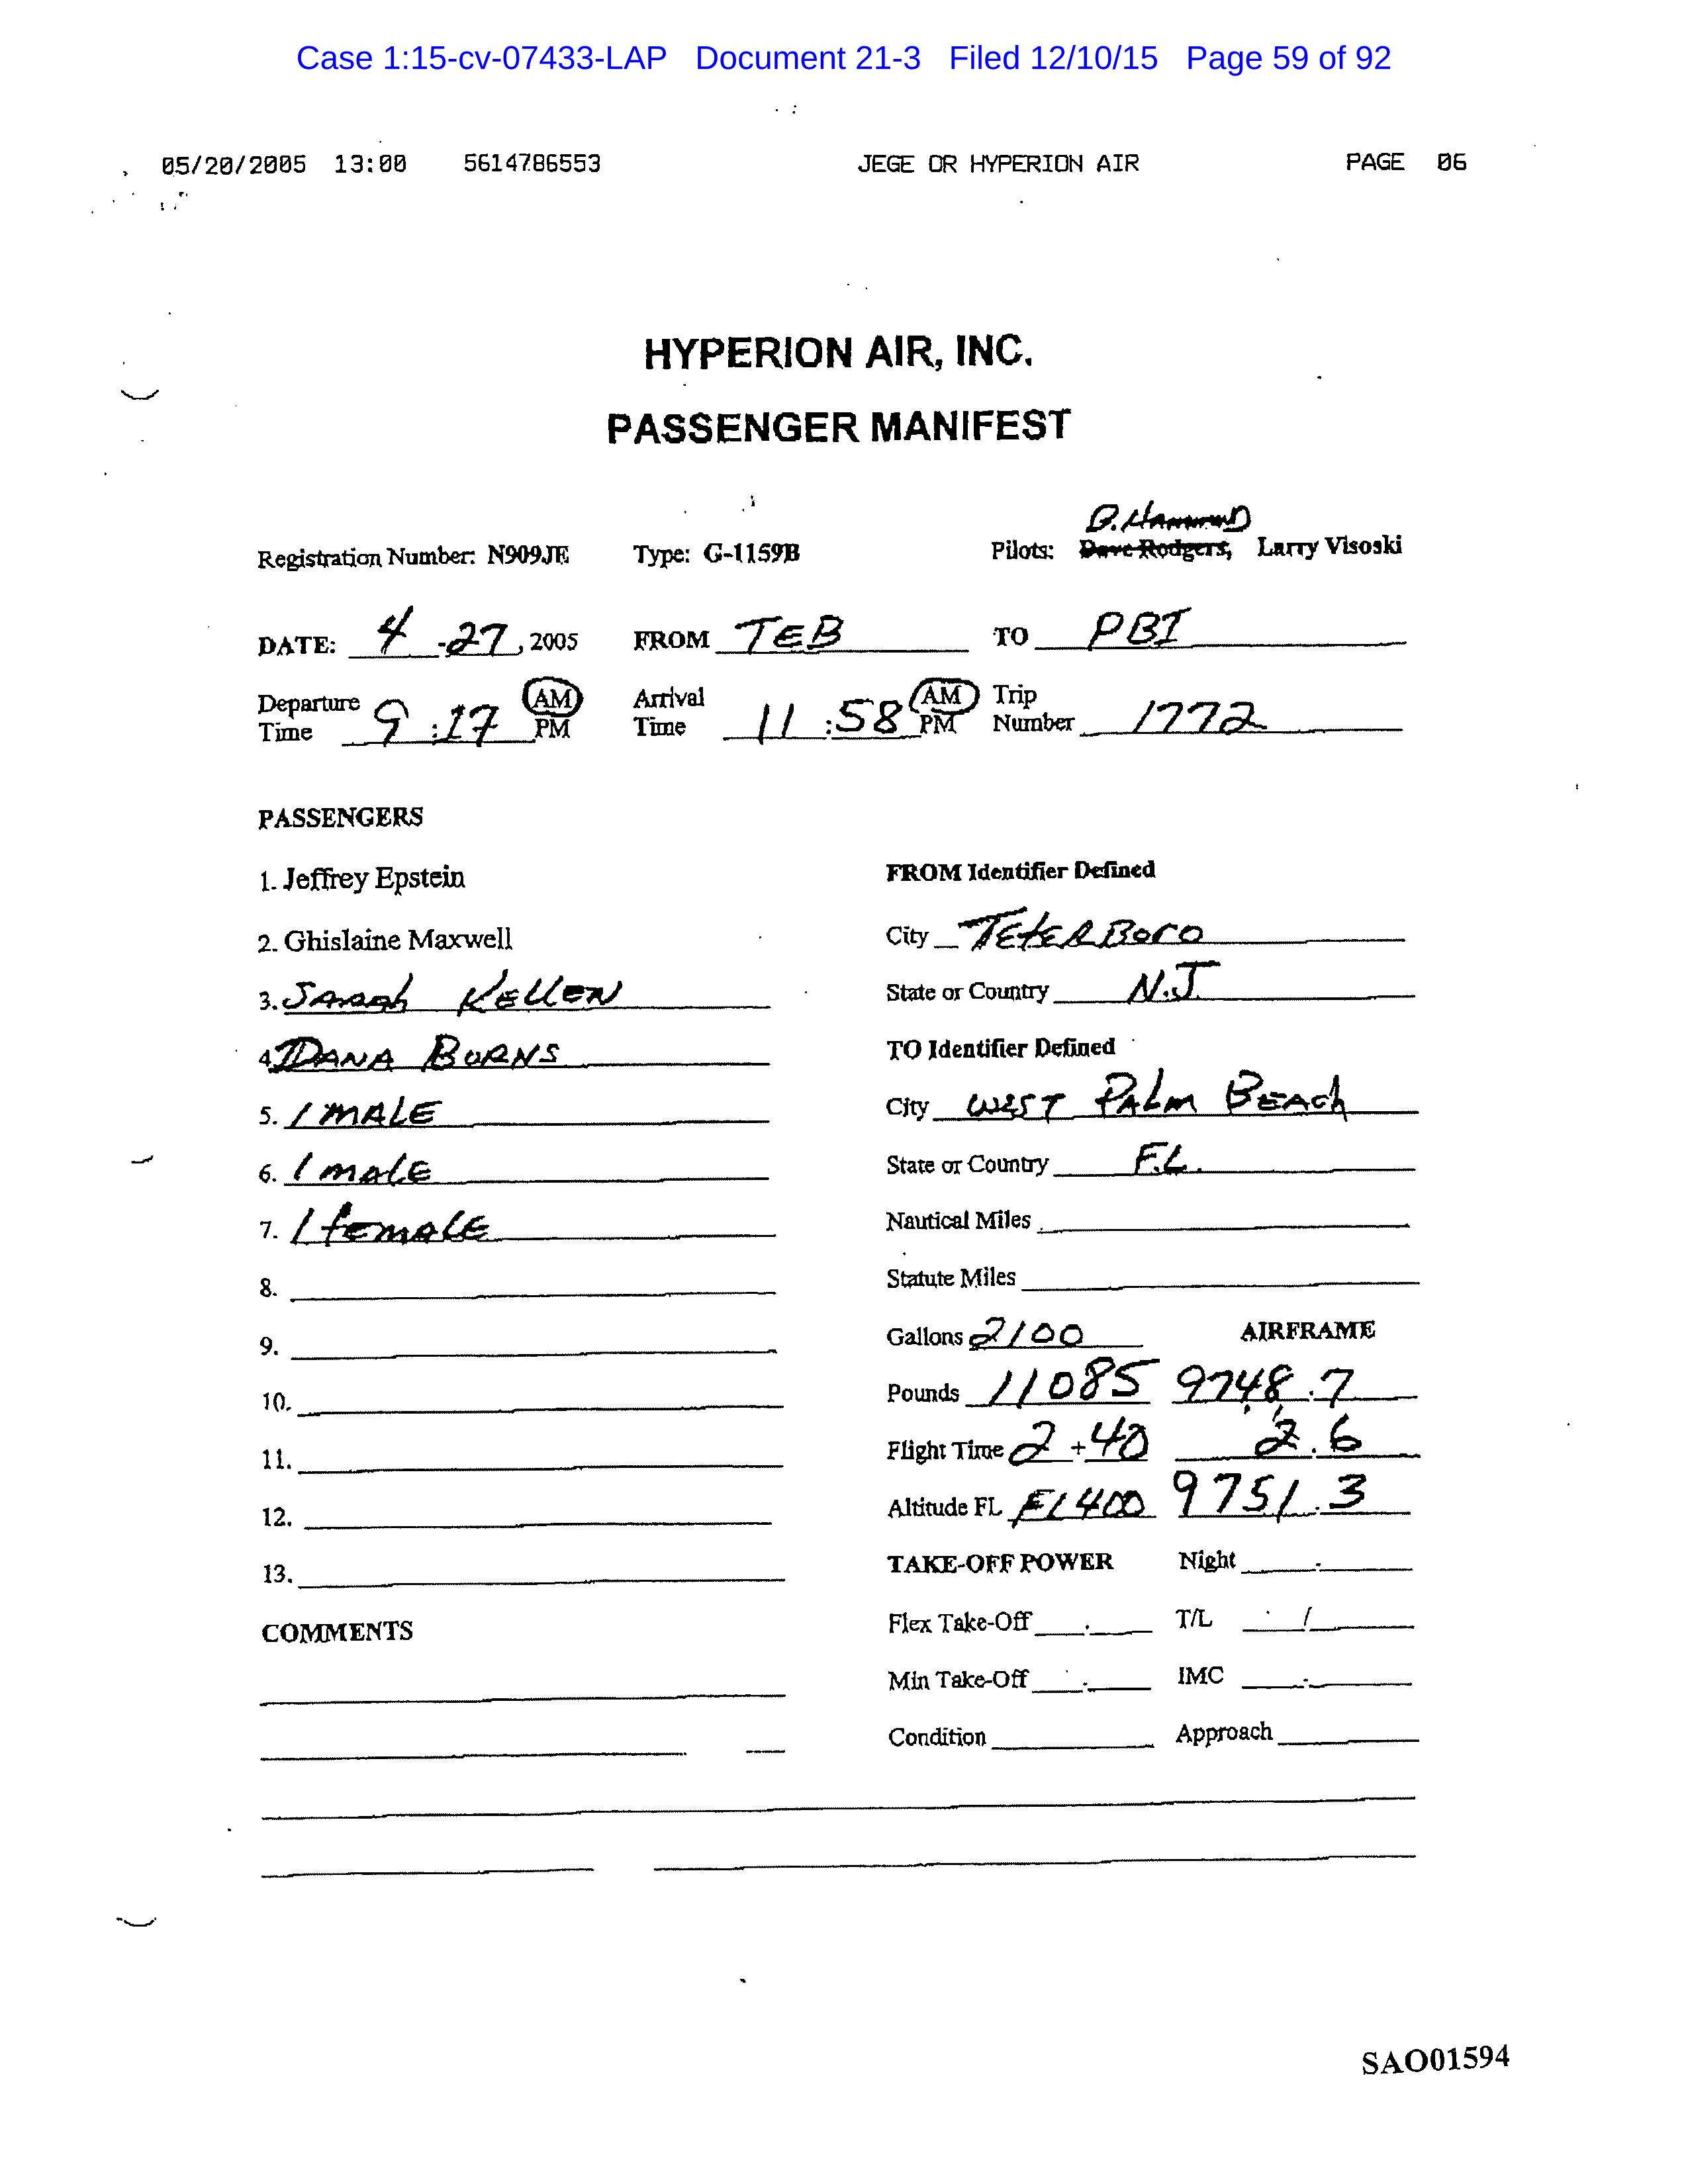 Case 1:15-cv-07433-LAP Document 21-3 Filed 12/10/15 Page 59 of 92
05/20/2005 13:00 5614786553 JEGE OR HYPERION AIR PAGE 06
HYPERION AIR, INC.
PASSENGER MANIFEST
B. Hammond
Registration Number: N909JE Type: G-1159B Pilots: Dave Rodgers, Larry Visoski
DATE: 4-27, 2005 FROM TEB TO PBI
Departure Time 9:17 AM PM Arrival Time 11:58 AM PM Trip Number 1772
PASSENGERS
1. Jeffrey Epstein
2. Ghislaine Maxwell
3. Sarah Kellen
4. DANA BURNS
5. 1 MALE
6. 1 male
7. 1 female
8.
9.
10.
11.
12.
13.
COMMENTS
FROM Identifier Defined
City TeterBoro
State or Country N.J.
TO Identifier Defined
City West Palm Beach
State or Country F.L.
Nautical Miles
Statute Miles
Gallons 2100 AIRFRAME
Pounds 11085 9748.7
Flight Time 2+40 2.6
Altitude FL FL400 9751.3
TAKE-OFF POWER Night
Flex Take-Off T/L /
Min Take-Off IMC
Condition Approach
SAO01594